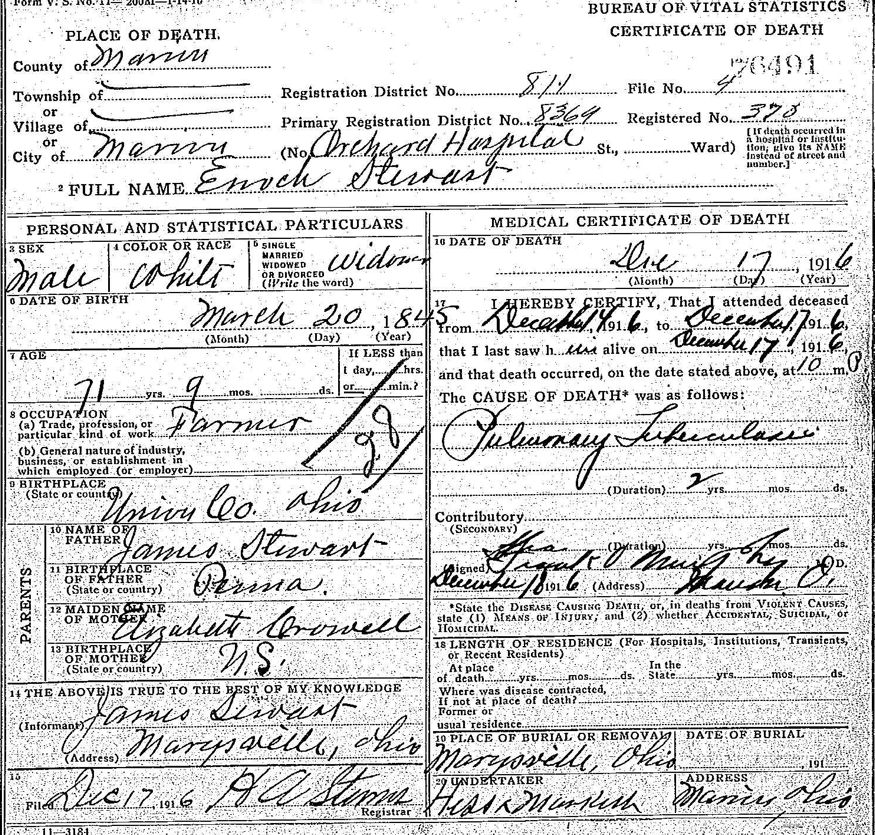 Form V. S. No. 11— 20081—1-14-16
BUREAU OF VITAL STATISTICS
CERTIFICATE OF DEATH
PLACE OF DEATH.
County of Marion
Township of
or
Village of
or
City of Marion
Registration District No. 811
File No. 76491
Primary Registration District No. 8369
Registered No. 378
(No. Orchard Hospital St., Ward)
[If death occurred in a hospital or institution, give its NAME instead of street and number.]
2 FULL NAME Enoch Stewart
PERSONAL AND STATISTICAL PARTICULARS
3 SEX
Male
4 COLOR OR RACE
White
5 SINGLE MARRIED WIDOWED OR DIVORCED (Write the word)
Widower
6 DATE OF BIRTH
March 20, 1845
(Month) (Day) (Year)
7 AGE
71 yrs. 9 mos. ds.
If LESS than 1 day, hrs. or min.?
28
8 OCCUPATION
(a) Trade, profession, or particular kind of work Farmer
(b) General nature of industry, business, or establishment in which employed (or employer)
9 BIRTHPLACE
(State or country) Union Co. Ohio
PARENTS
10 NAME OF FATHER James Stewart
11 BIRTHPLACE OF FATHER
(State or country) Penna.
12 MAIDEN NAME OF MOTHER Elizabeth Crowell
13 BIRTHPLACE OF MOTHER
(State or country)
14 THE ABOVE IS TRUE TO THE BEST OF MY KNOWLEDGE
(Informant) James Sewart
(Address) Marysville, Ohio
15
Filed Dec 17 1916
Registrar
MEDICAL CERTIFICATE OF DEATH
16 DATE OF DEATH
Dec 17, 1916
(Month) (Day) (Year)
17 I HEREBY CERTIFY, That I attended deceased
from December 14 1916, to December 17, 1916,
that I last saw him alive on December 17, 1916,
and that death occurred, on the date stated above, at 10 P m.
The CAUSE OF DEATH* was as follows:
Pulmonary Tuberculosis
(Duration) 2 yrs. mos. ds.
Contributory
(SECONDARY)
(Duration) yrs. mos. ds.
(Signed) Frank M.D.
December 18 1916 (Address) O.
*State the DISEASE CAUSING DEATH, or, in deaths from VIOLENT CAUSES,
state (1) MEANS OF INJURY; and (2) whether ACCIDENTAL, SUICIDAL, or
HOMICIDAL.
18 LENGTH OF RESIDENCE (For Hospitals, Institutions, Transients,
or Recent Residents)
At place of death yrs. mos. ds. In the State yrs. mos. ds.
Where was disease contracted,
If not at place of death?
Former or
usual residence
19 PLACE OF BURIAL OR REMOVAL
Marysville, Ohio
DATE OF BURIAL
, 191
20 UNDERTAKER
Hess & Markert
ADDRESS
Marion Ohio
11—3184